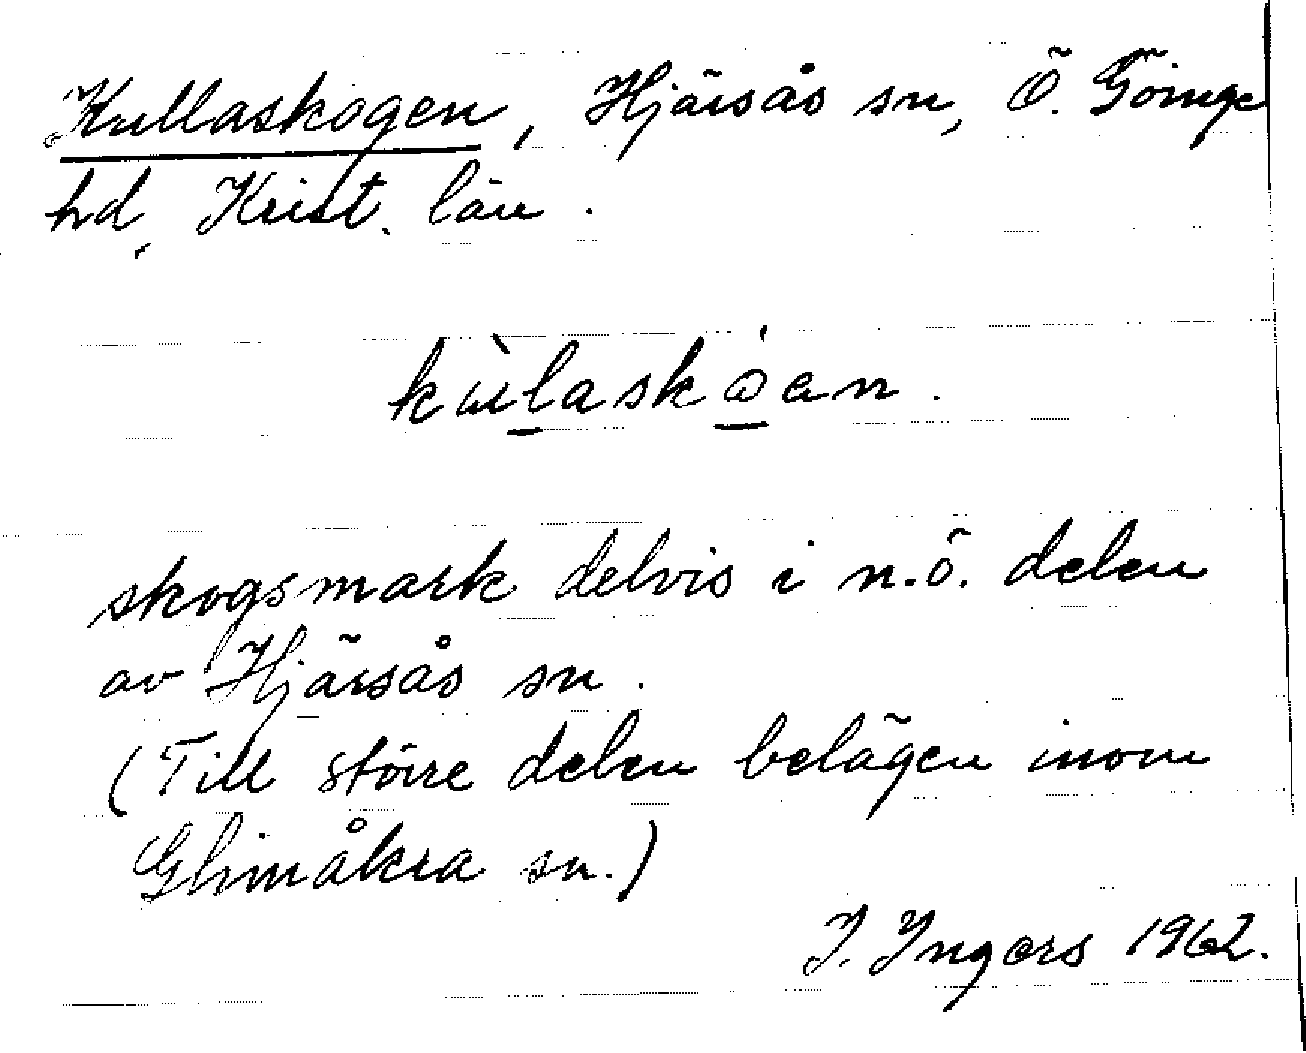 Kullaskogen, Hjärsås sn, Ö. Göinge
hd, Krist. län.
kùlaskóan.
skogsmark delvis i n.ö. delen
av Hjärsås sn.
(Till större delen belägen inom
Glimåkra sn.)
I. Ingers 1962.